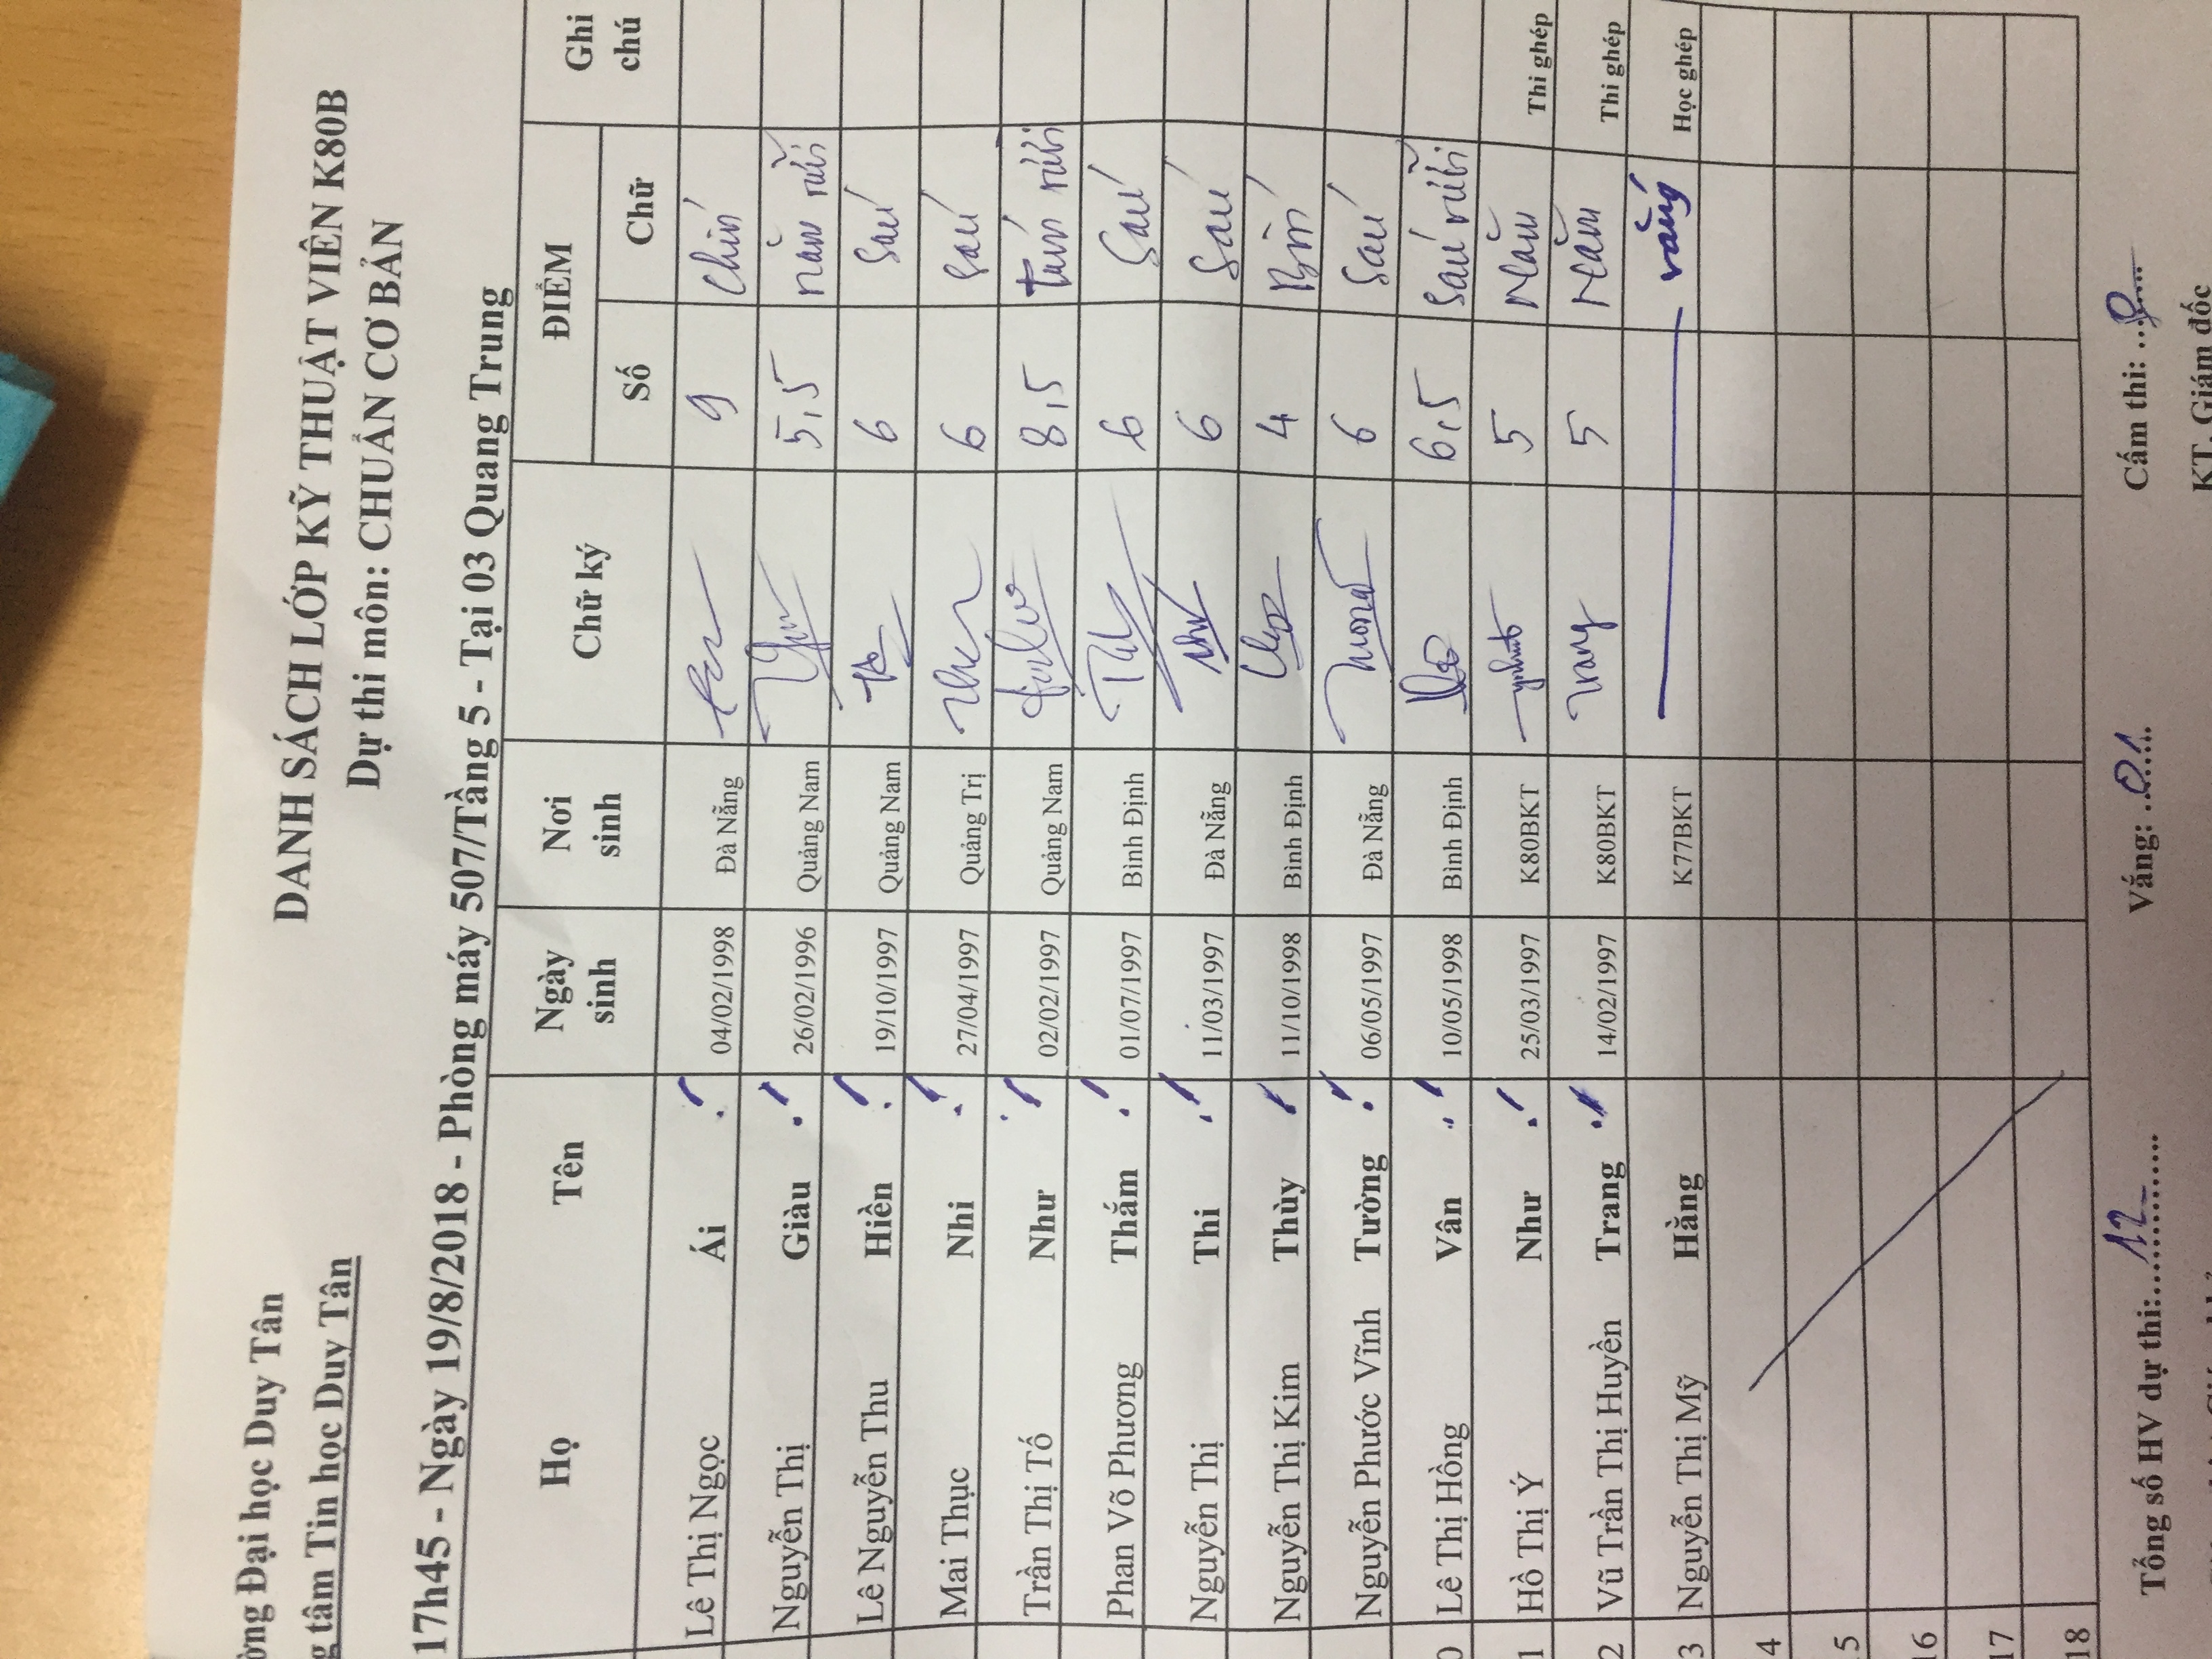 ờng Đại học Duy Tân
g tâm Tin học Duy Tân
DANH SÁCH LỚP KỸ THUẬT VIÊN K80B
Dự thi môn: CHUẨN CƠ BẢN
17h45 - Ngày 19/8/2018 - Phòng máy 507/Tầng 5 - Tại 03 Quang Trung
Họ Tên Ngày sinh Nơi sinh Chữ ký ĐIỂM Ghi chú
Số Chữ
Lê Thị Ngọc Ái 04/02/1998 Đà Nẵng 9 chín
Nguyễn Thị Giàu 26/02/1996 Quảng Nam 5,5 năm rưỡi
Lê Nguyễn Thu Hiền 19/10/1997 Quảng Nam 6 Sáu
Mai Thục Nhi 27/04/1997 Quảng Trị 6 Sáu
Trần Thị Tố Như 02/02/1997 Quảng Nam 8,5 tám rưỡi
Phan Võ Phương Thắm 01/07/1997 Bình Định 6 Sáu
Nguyễn Thị Thi 11/03/1997 Đà Nẵng Như 6 Sáu
Nguyễn Thị Kim Thùy 11/10/1998 Bình Định 4 Bốn
Nguyễn Phước Vĩnh Tường 06/05/1997 Đà Nẵng 6 Sáu
0 Lê Thị Hồng Vân 10/05/1998 Bình Định 6,5 Sáu rưỡi
1 Hồ Thị Ý Như 25/03/1997 K80BKT 5 Năm Thi ghép
2 Vũ Trần Thị Huyền Trang 14/02/1997 K80BKT Trang 5 Năm Thi ghép
3 Nguyễn Thị Mỹ Hằng K77BKT vắng Học ghép
4
15
16
17
18
Tổng số HV dự thi:....12.... Vắng: ..01.... Cấm thi: ..0....
KT. Giám đốc